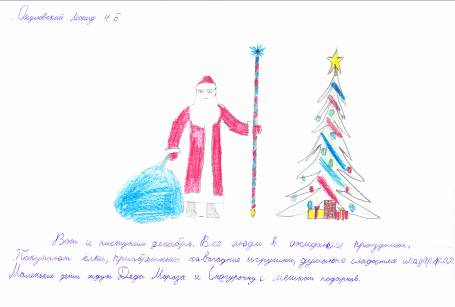 4 Б
Вот и наступил декабрь. Все люди в ожидании праздника.
Покупают ёлки, новогодние игрушки, сладостях и подарках.
Маленькие дети ждут Деда Мороза и Снегурочку с мешком подарков.